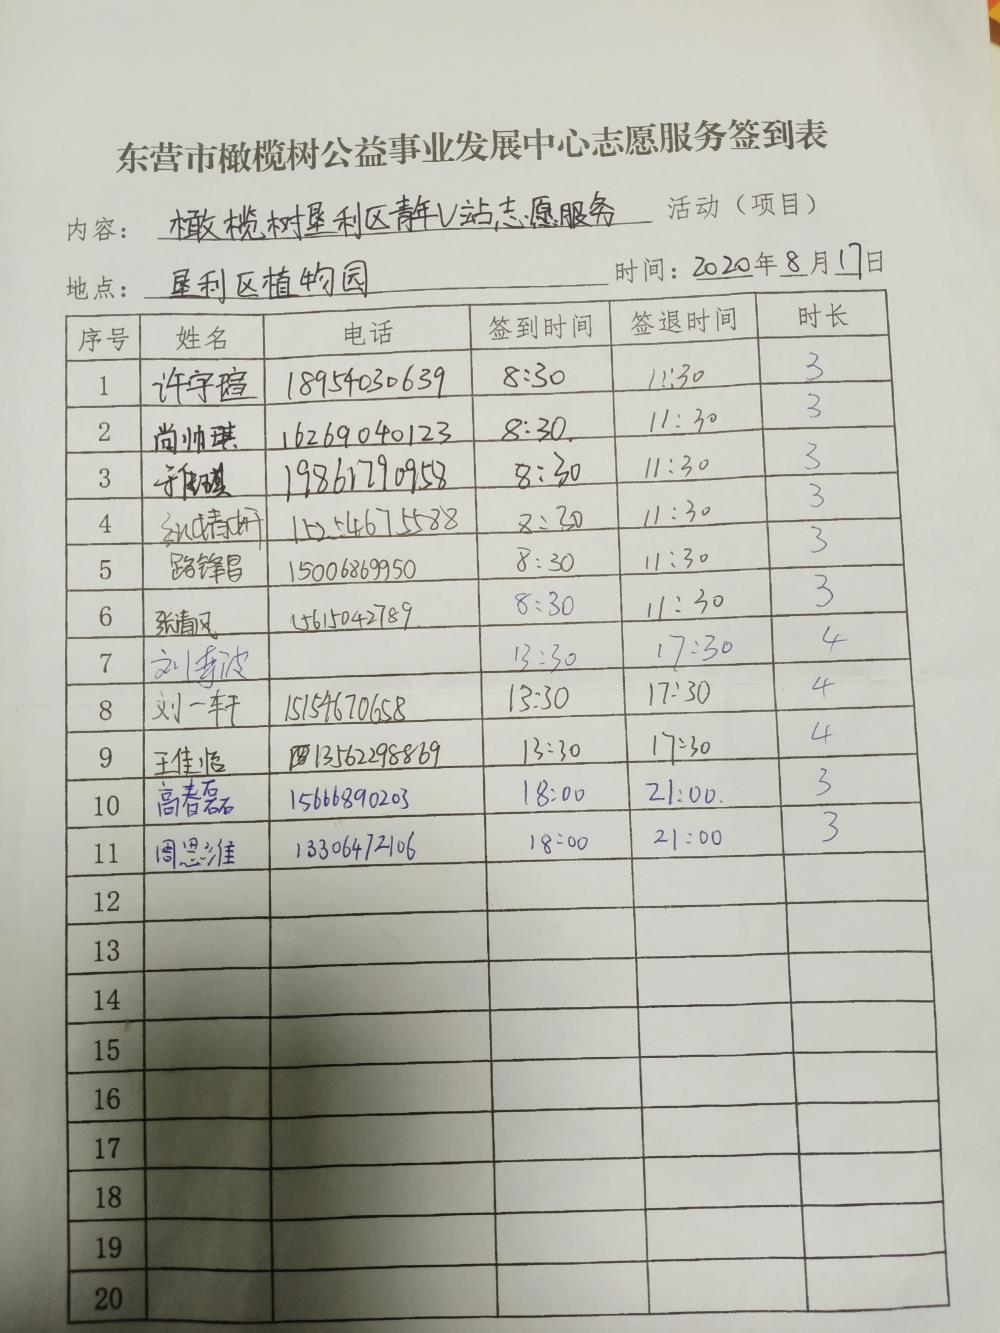 东营市橄榄树公益事业发展中心志愿服务签到表
内容：橄榄树垦利区青年V站志愿服务 活动（项目）
地点：垦利区植物园 时间：2020年8月17日
序号 姓名 电话 签到时间 签退时间 时长
1 许宇瑄 18954030639 8:30 11:30 3
2 尚帅琪 16269040123 8:30. 11:30 3
3 19861790958 8:30 11:30 3
4 15254675588 8:30 11:30 3
5 路锋昌 15006869950 8:30 11:30 3
6 张清风 15615042789. 8:30 11:30 3
7 13:30 17:30 4
8 刘一轩 15154670658 13:30 17:30 4
9 王佳临 13562298869 13:30 17:30 4
10 高春磊 15666890203 18:00 21:00. 3
11 周思淮 13306472106 18:00 21:00 3
12
13
14
15
16
17
18
19
20